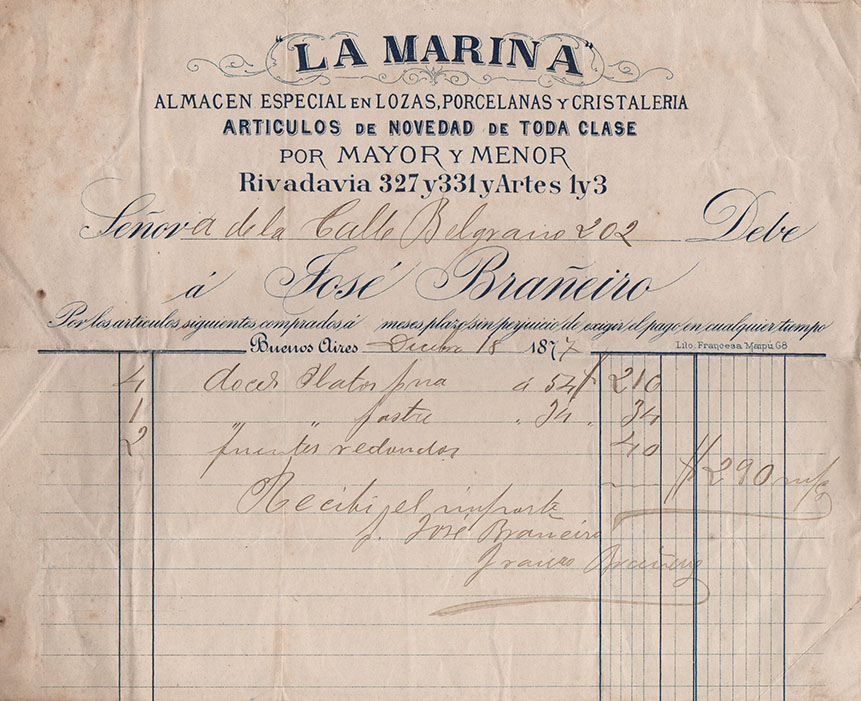 "LA MARINA"
ALMACEN ESPECIAL EN LOZAS, PORCELANAS Y CRISTALERIA
ARTICULOS DE NOVEDAD DE TODA CLASE
POR MAYOR Y MENOR
Rivadavia 327 y 331 y Artes 1 y 3
Señora de la Calle Belgrano 202 Debe
á José Brañeiro
Por los articulos siguientes comprados á meses plazo sin perjuicio de exigir el pago en cualquier tiempo
Lito. Francesa Maipú 68
Buenos Aires Dicebre 18 1877
4 doces Platos á 54 216
1 " " postre " 34 " 34
2 fuentes redondas 40
$ 290 m/c
Recibi el importe
p. José Brañeiro